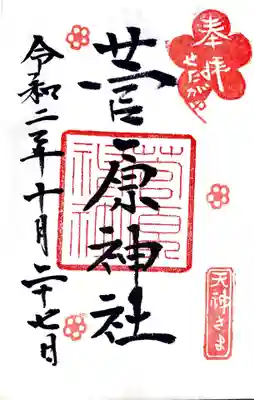 奉拝
せたがや
菅原神社
天神さま
令和二年十月二十七日